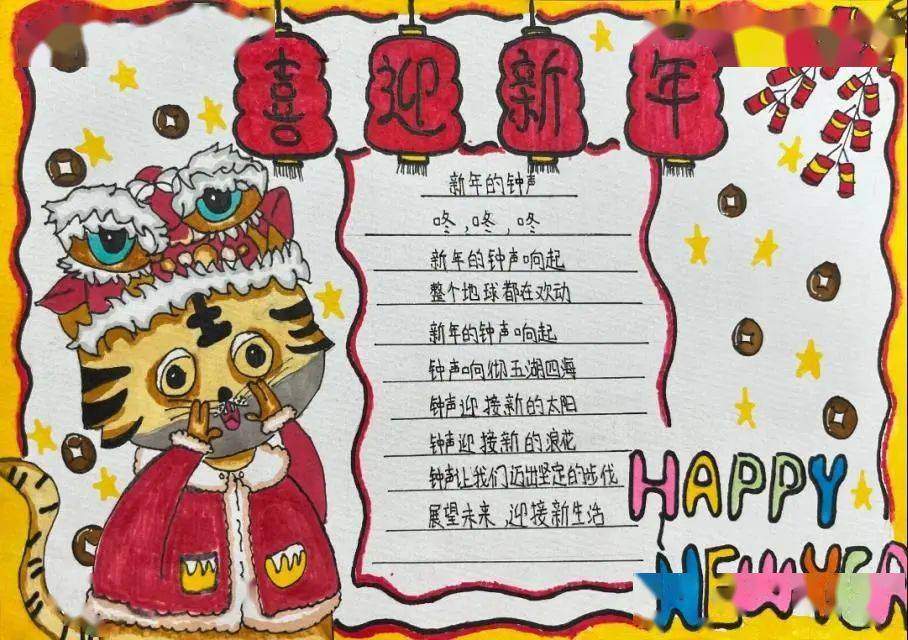 喜迎新年
新年的钟声
咚,咚,咚
新年的钟声响起
整个地球都在欢动
新年的钟声响起
钟声响彻五湖四海
钟声迎接新的太阳
钟声迎接新的浪花
钟声让我们迈出坚定的步伐
展望未来,迎接新生活
HAPPY
NEWYEA